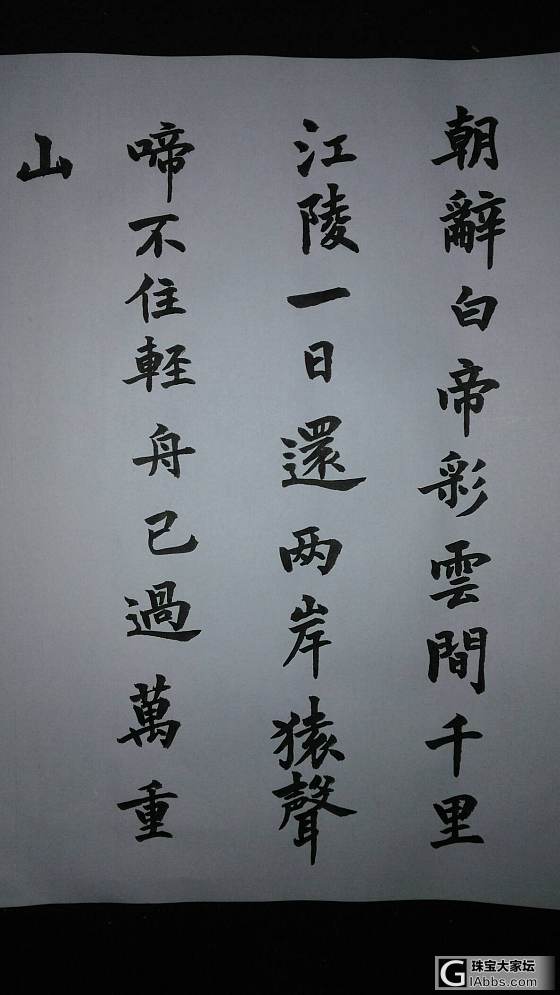 朝辭白帝彩雲間千里
江陵一日還两岸猿聲
啼不住輕舟已過萬重
山
珠宝大家坛
GIAbbs.com